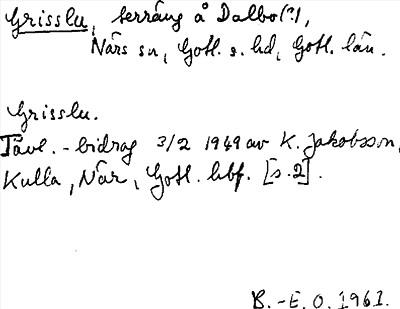 Grisslu, terräng å Dalbo(?),
Närs sn, Gotl. s. hd, Gotl. län.
Grisslu.
Tävl.-bidrag 3/2 1949 av K. Jakobsson,
Kulla, När, Gotl. hbf. [s. 2].
B.-E. O. 1961.